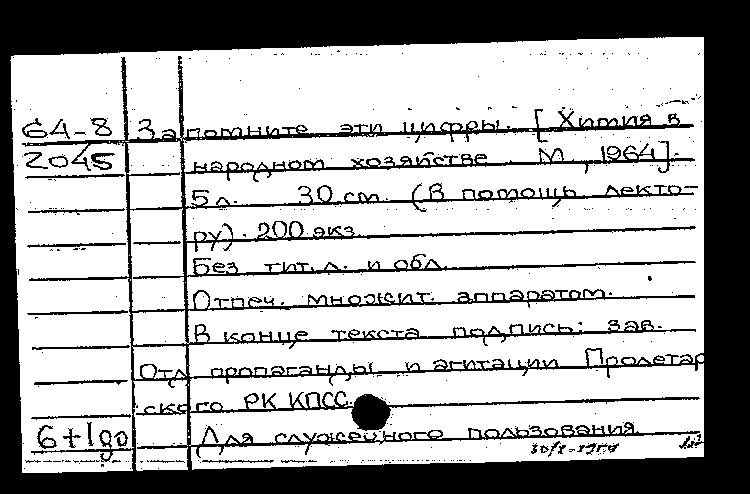 64-8 Запомните эти цифры. [Химия в
2045 народном хозяйстве М., 1964].
5 л. 30 см. (В помощь лекто-
ру). 200 экз.
Без тит. л. и обл.
Отпеч. множит. аппаратом.
В конце текста подпись: зав.
Отд пропаганды и агитации Пролетар
ского РК КПСС.
6+1до Для служебного пользования